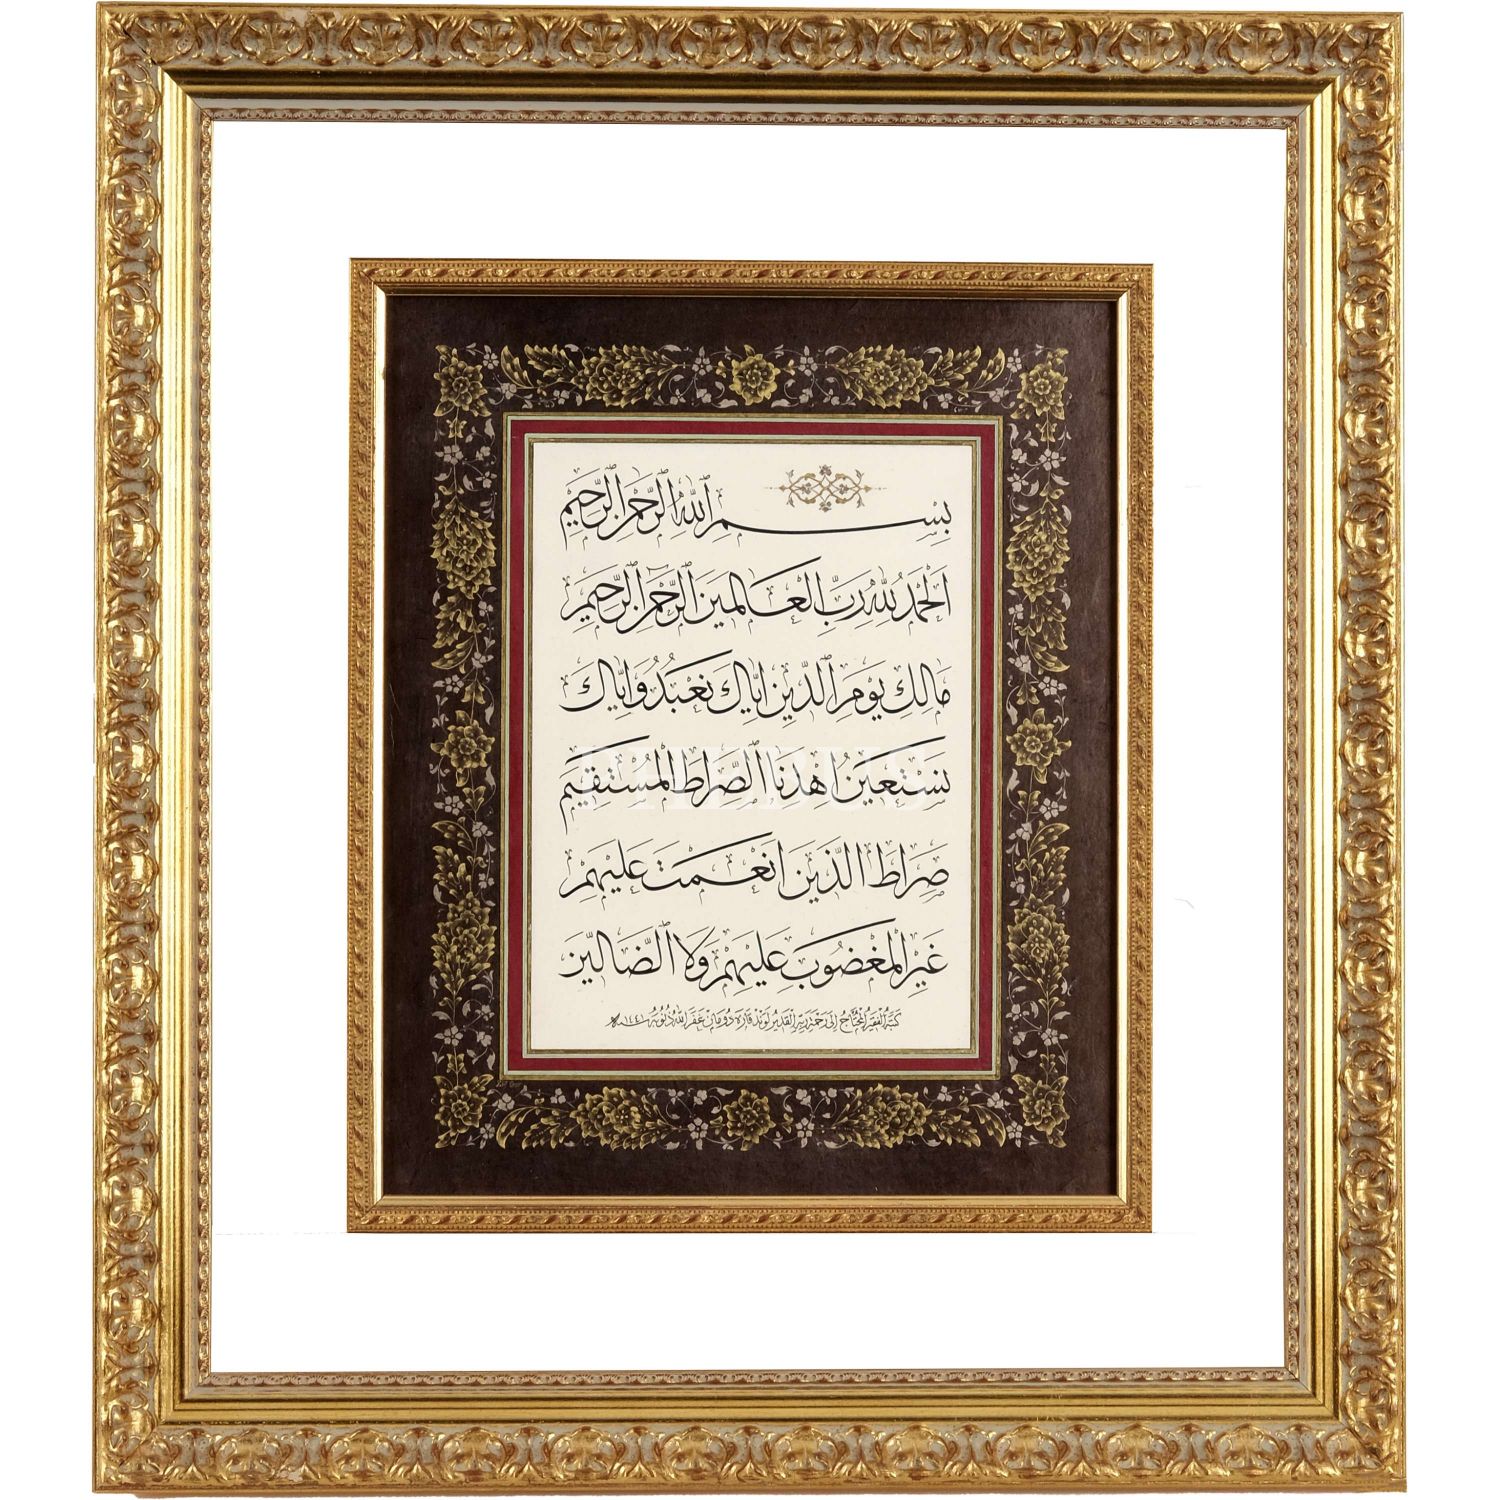 بِسْمِ اللهِ الرَّحْمٰنِ الرَّحِيمِ
اَلْحَمْدُ لِلّٰهِ رَبِّ الْعَالَمِينَ الرَّحْمٰنِ الرَّحِيمِ
مَالِكِ يَوْمِ الدِّينِ اِيَّاكَ نَعْبُدُ وَاِيَّاكَ
نَسْتَعِينُ اِهْدِنَا الصِّرَاطَ الْمُسْتَقِيمَ
PHEBUS
صِرَاطَ الَّذِينَ اَنْعَمْتَ عَلَيْهِمْ
غَيْرِ الْمَغْضُوبِ عَلَيْهِمْ وَلَا الضَّالِّينَ
كتبه الفقير المحتاج الى رحمة ربه القدير لوند قاره دومان غفر الله ذنوبه ١٤٤١